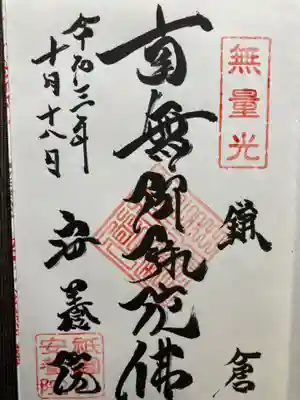 無量光
鎌倉
南無阿弥陀佛
安養院
令和三年
十月十八日